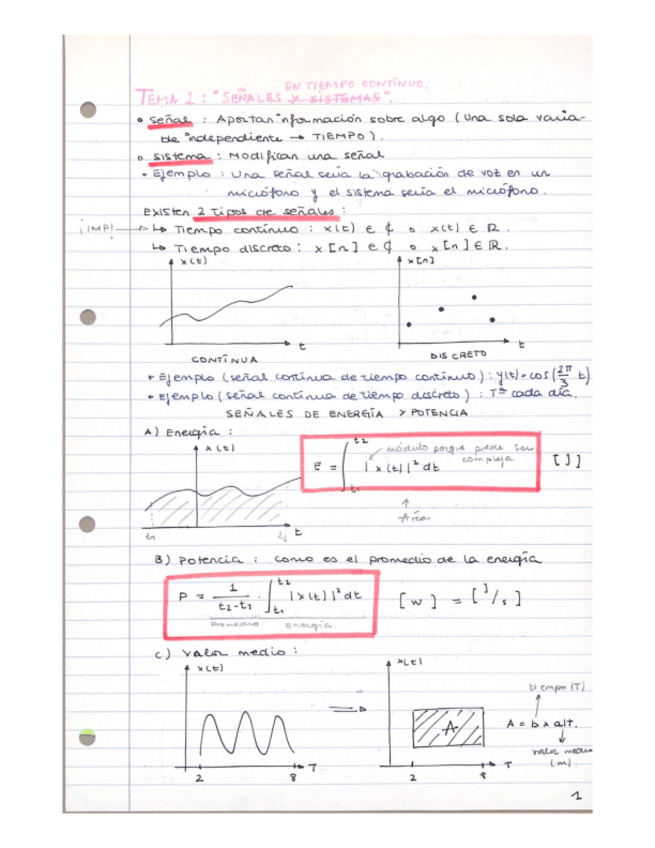 EN TIEMPO CONTÍNUO.
TEMA 1: "SEÑALES Y SISTEMAS".
• señal : Aportan información sobre algo (Una sola varia-
ble independiente → TIEMPO).
• sistema : Modifican una señal
• Ejemplo : Una señal sería la grabación de voz en un
micrófono y el sistema sería el micrófono.
Existen 2 tipos de señales :
¡IMP! → ↳ Tiempo contínuo : x(t) ∈ ₵ o x(t) ∈ ℝ.
↳ Tiempo discreto : x[n] ∈ ₵ o x[n] ∈ ℝ.
x(t) x[n]
t t
CONTÍNUA DISCRETO
• Ejemplo (señal contínua de tiempo contínuo) : y(t) = cos(2π/3 t)
• Ejemplo (señal contínua de tiempo discreto) : Tª cada día.
SEÑALES DE ENERGÍA Y POTENCIA
A) Energía :
x(t)
módulo porque puede ser
compleja
E = ∫t1^t2 |x(t)|² dt [J]
Área
t1 t2 t
B) Potencia : como es el promedio de la energía
P = 1/(t2-t1) · ∫t1^t2 |x(t)|² dt [W] = [J/s]
Promedio Energía
C) Valor medio :
x(t) x(t)
tiempo (T)
A A = b x alt.
valor medio
(m)
2 8 T 2 8 T
1